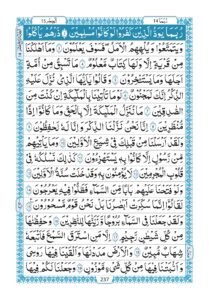 ربما ١٤ الحجر ١٥
رُبَمَا يَوَدُّ الَّذِيْنَ كَفَرُوْا لَوْ كَانُوْا مُسْلِمِيْنَ ۝ ذَرْهُمْ يَاْكُلُوْا
وَيَتَمَتَّعُوْا وَيُلْهِهِمُ الْاَمَلُ فَسَوْفَ يَعْلَمُوْنَ ۝ وَمَاۤ اَهْلَكْنَا
مِنْ قَرْيَةٍ اِلَّا وَلَهَا كِتَابٌ مَّعْلُوْمٌ ۝ مَا تَسْبِقُ مِنْ اُمَّةٍ
اَجَلَهَا وَمَا يَسْتَاْخِرُوْنَ ۝ وَقَالُوْا يٰۤاَيُّهَا الَّذِيْ نُزِّلَ عَلَيْهِ
الذِّكْرُ اِنَّكَ لَمَجْنُوْنٌ ۝ لَوْ مَا تَاْتِيْنَا بِالْمَلٰٓئِكَةِ اِنْ كُنْتَ
مِنَ الصّٰدِقِيْنَ ۝ مَا نُنَزِّلُ الْمَلٰٓئِكَةَ اِلَّا بِالْحَقِّ وَمَا كَانُوْۤا اِذًا
مُّنْظَرِيْنَ ۝ اِنَّا نَحْنُ نَزَّلْنَا الذِّكْرَ وَاِنَّا لَهٗ لَحٰفِظُوْنَ ۝
وَلَقَدْ اَرْسَلْنَا مِنْ قَبْلِكَ فِيْ شِيَعِ الْاَوَّلِيْنَ ۝ وَمَا يَاْتِيْهِمْ
مِّنْ رَّسُوْلٍ اِلَّا كَانُوْا بِهٖ يَسْتَهْزِءُوْنَ ۝ كَذٰلِكَ نَسْلُكُهٗ فِيْ
قُلُوْبِ الْمُجْرِمِيْنَ ۝ لَا يُؤْمِنُوْنَ بِهٖ وَقَدْ خَلَتْ سُنَّةُ الْاَوَّلِيْنَ ۝
وَلَوْ فَتَحْنَا عَلَيْهِمْ بَابًا مِّنَ السَّمَآءِ فَظَلُّوْا فِيْهِ يَعْرُجُوْنَ ۝
لَقَالُوْۤا اِنَّمَا سُكِّرَتْ اَبْصَارُنَا بَلْ نَحْنُ قَوْمٌ مَّسْحُوْرُوْنَ ۝
وَلَقَدْ جَعَلْنَا فِي السَّمَآءِ بُرُوْجًا وَّزَيَّنّٰهَا لِلنّٰظِرِيْنَ ۝ وَحَفِظْنٰهَا
مِنْ كُلِّ شَيْطٰنٍ رَّجِيْمٍ ۝ اِلَّا مَنِ اسْتَرَقَ السَّمْعَ فَاَتْبَعَهٗ
شِهَابٌ مُّبِيْنٌ ۝ وَالْاَرْضَ مَدَدْنٰهَا وَاَلْقَيْنَا فِيْهَا رَوَاسِيَ
وَاَنْۢبَتْنَا فِيْهَا مِنْ كُلِّ شَيْءٍ مَّوْزُوْنٍ ۝ وَجَعَلْنَا لَكُمْ فِيْهَا
237